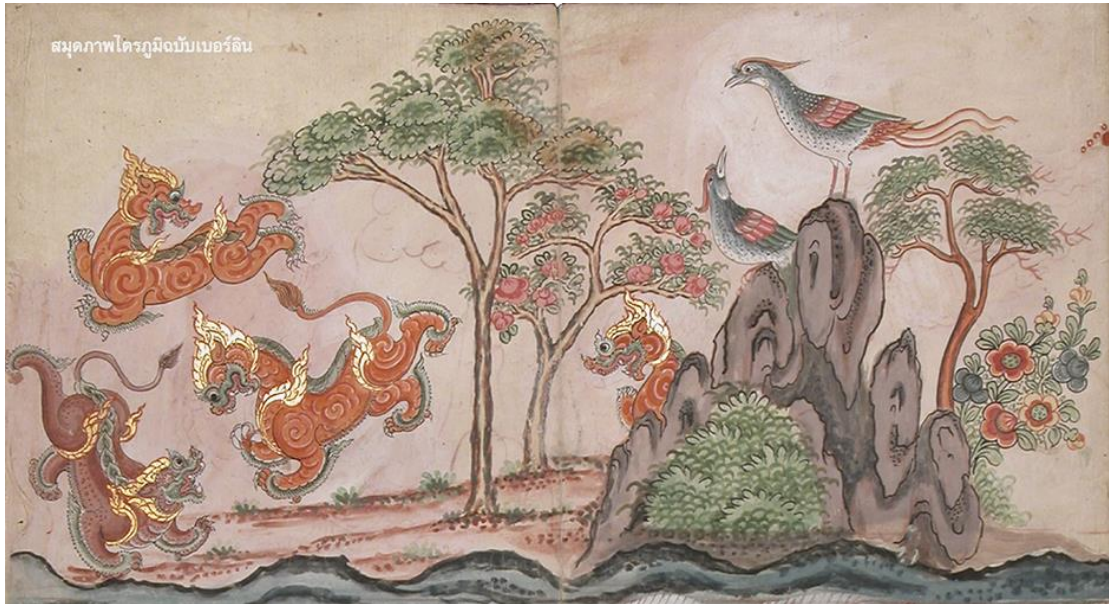 สมุดภาพไตรภูมิฉบับเบอร์ลิน